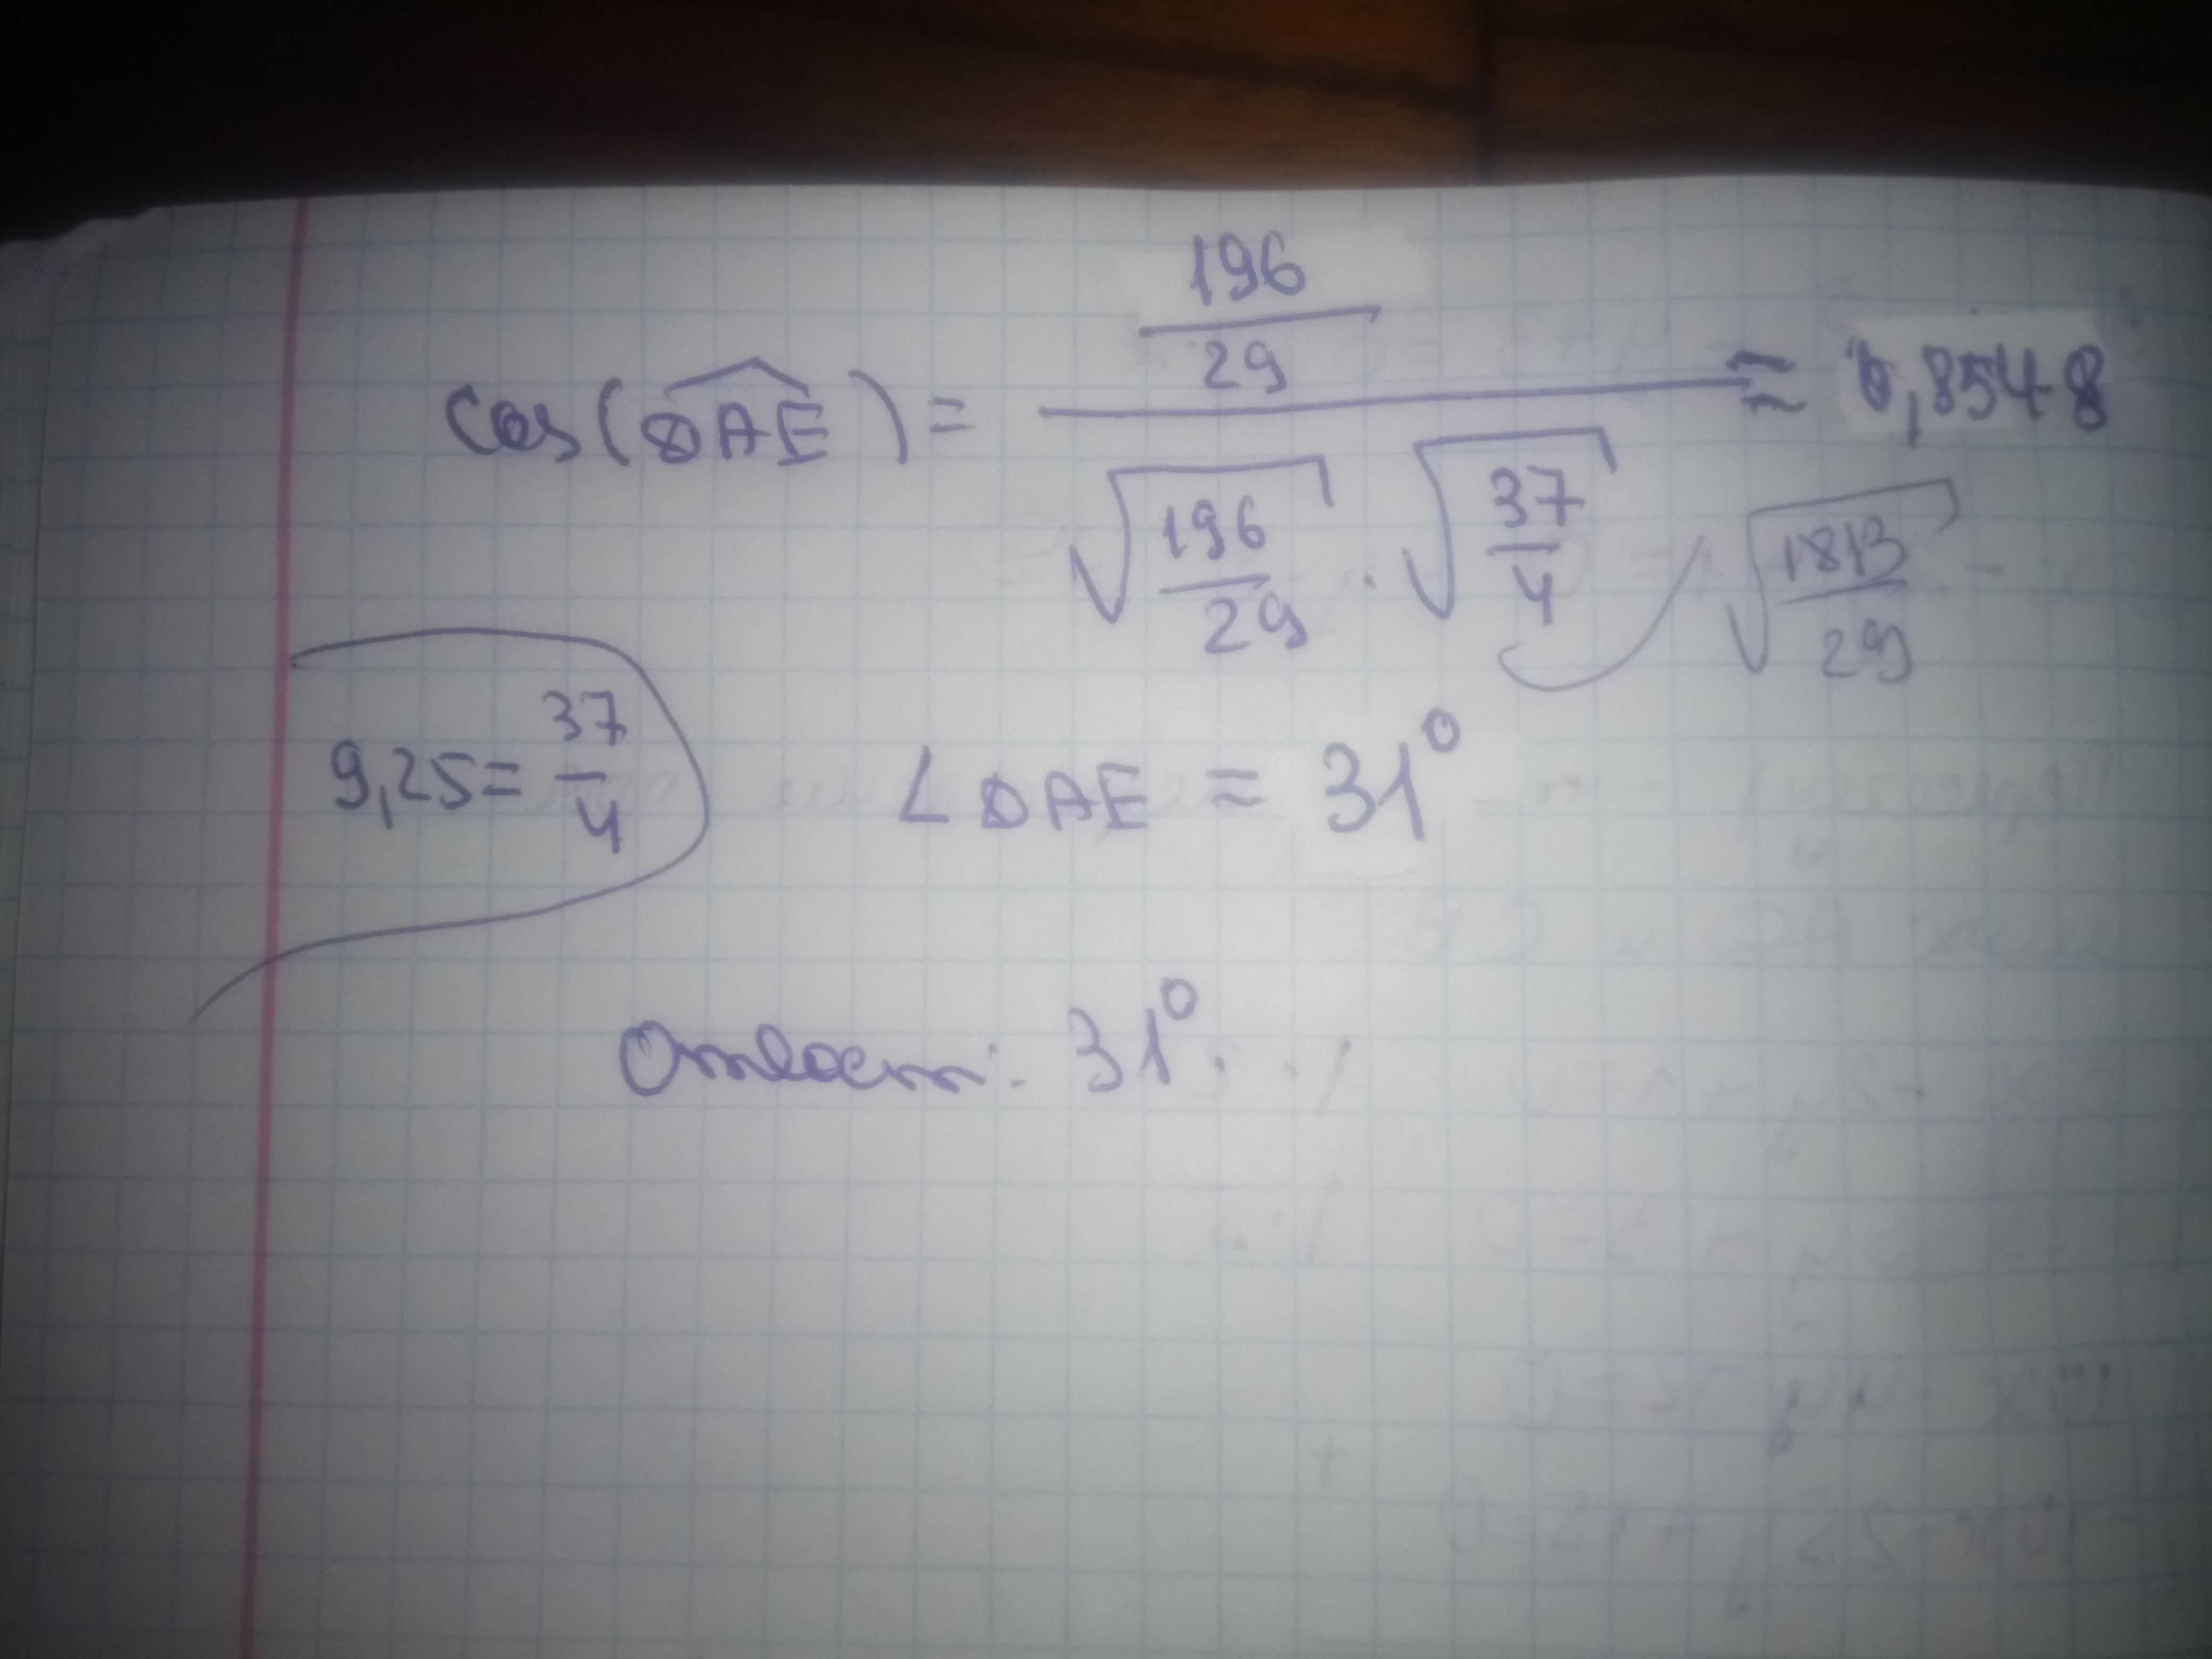 cos(DAE) = 196/29 / (√(196/29) · √(37/4)) ≈ 0,8548
√(1813/29)
9,25 = 37/4
∠DAE ≈ 31°
Ответ: 31°.